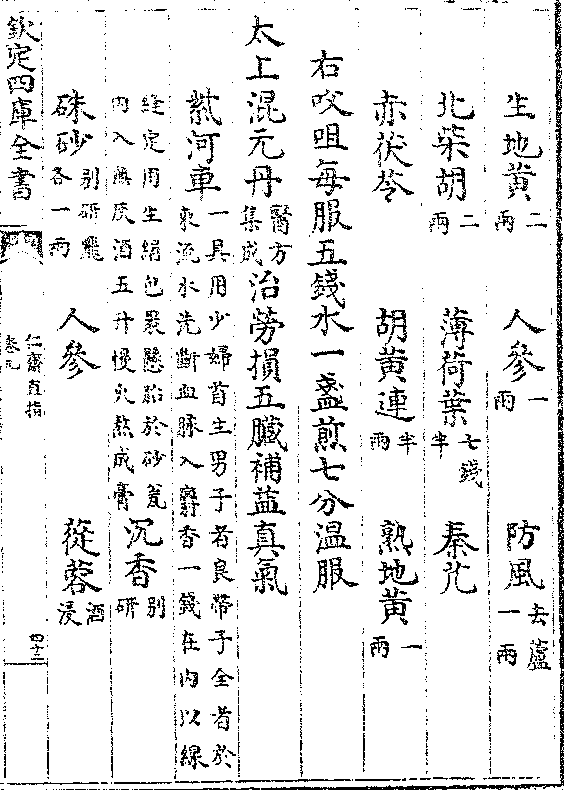 生地黄二兩 人參一兩 防風去蘆一兩
北柴胡二兩 薄荷葉七錢半 秦艽
赤茯苓 胡黄連半兩 熟地黄一兩
右㕮咀每服五錢水一盞煎七分温服
太上混元丹醫方集成治勞損五臟補益真氣
紫河車一具用少婦首生男子者良帶子全者於東流水洗斷血脉入麝香一錢在内以線
縫定用生絹包裹懸胎於砂瓮内入無灰酒五升慢火熬成膏 沉香别研
硃砂别研飛各一兩 人參 蓯蓉酒浸
欽定四庫全書
仁齋直指
卷九
四十二